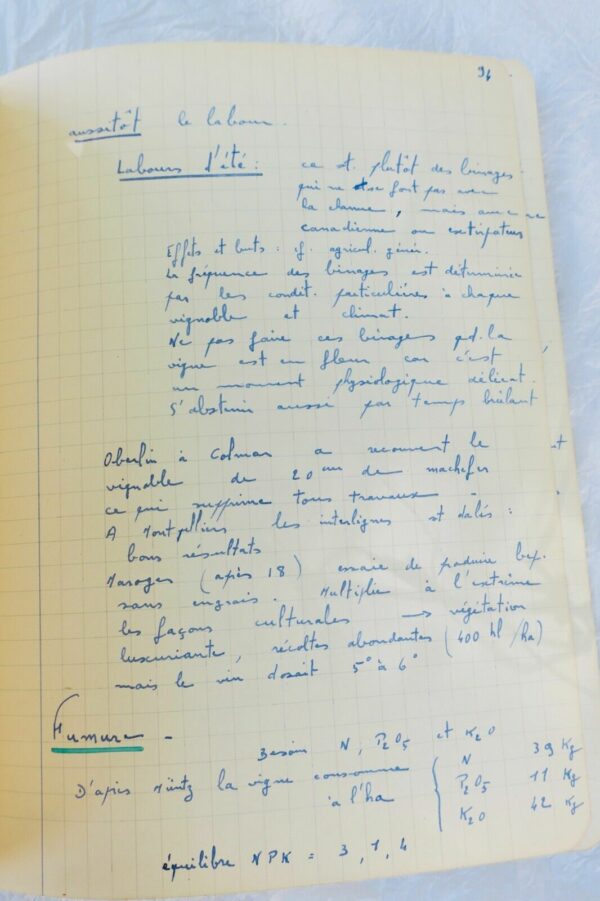 94
aussitôt le labour.
Labours d'été : ce st. plutôt des binages
qui ne se font pas avec
la charrue, mais avec
canadienne ou extirpateur
Effets et buts : cf. agricul. génér.
la fréquence des binages est déterminée
par les condit. particulières à chaque
vignoble et climat.
Ne pas faire ces binages pd. la
vigne est en fleur car c'est
un moment physiologique délicat.
S'abstenir aussi par temps brûlant
Oberlin à Colmar a recouvert le
vignoble de 20 cm de machefer
ce qui supprime tous travaux
A Montpelliers les interlignes st dalés :
bons résultats
(après 18) essaie de produire bcp.
sans engrais. Multiplie à l'extrême
les façons culturales → végétation
luxuriante, récoltes abondantes (400 hl/ha)
mais le vin dosait 5° à 6°
Fumure -
Besoin N, P2O5 et K2O
D'après Müntz la vigne consomme à l'ha
N 39 Kg
P2O5 11 Kg
K2O 42 Kg
équilibre NPK = 3, 1, 4